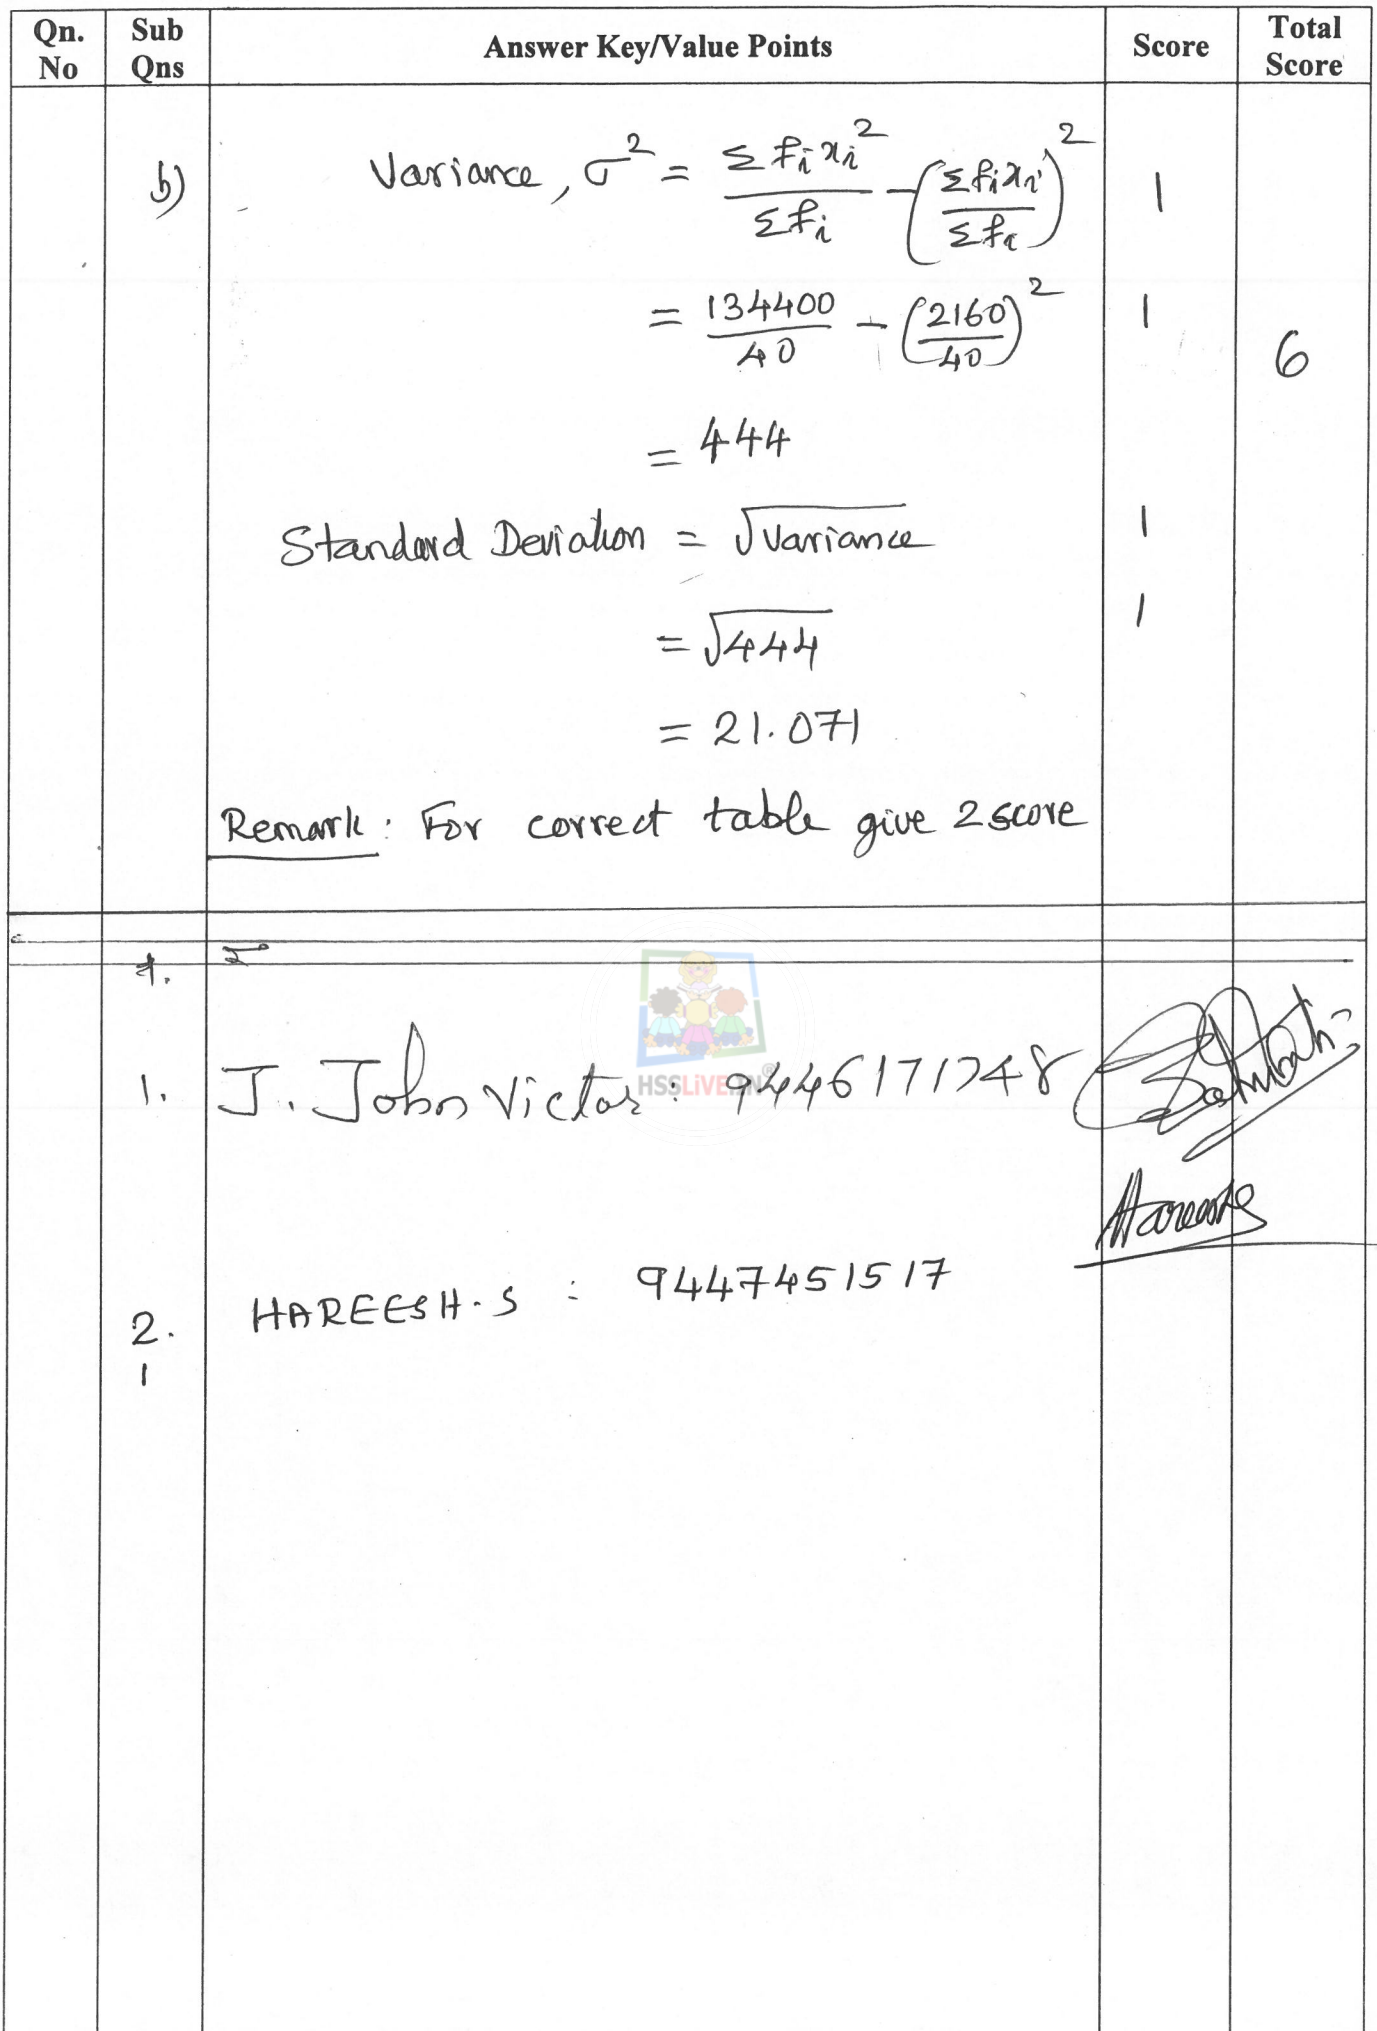 Qn. No Sub Qns Answer Key/Value Points Score Total Score
b) Variance, σ² = Σfᵢxᵢ²/Σfᵢ - (Σfᵢxᵢ/Σfᵢ)² 1
= 134400/40 - (2160/40)² 1
6
= 444
Standard Deviation = √variance 1
= √444 1
= 21.071
Remark : For correct table give 2 score
1. J. John Victor : 9446171748
HSSLiVE.IN®
Hareesh
2. HAREESH.S : 9447451517
1